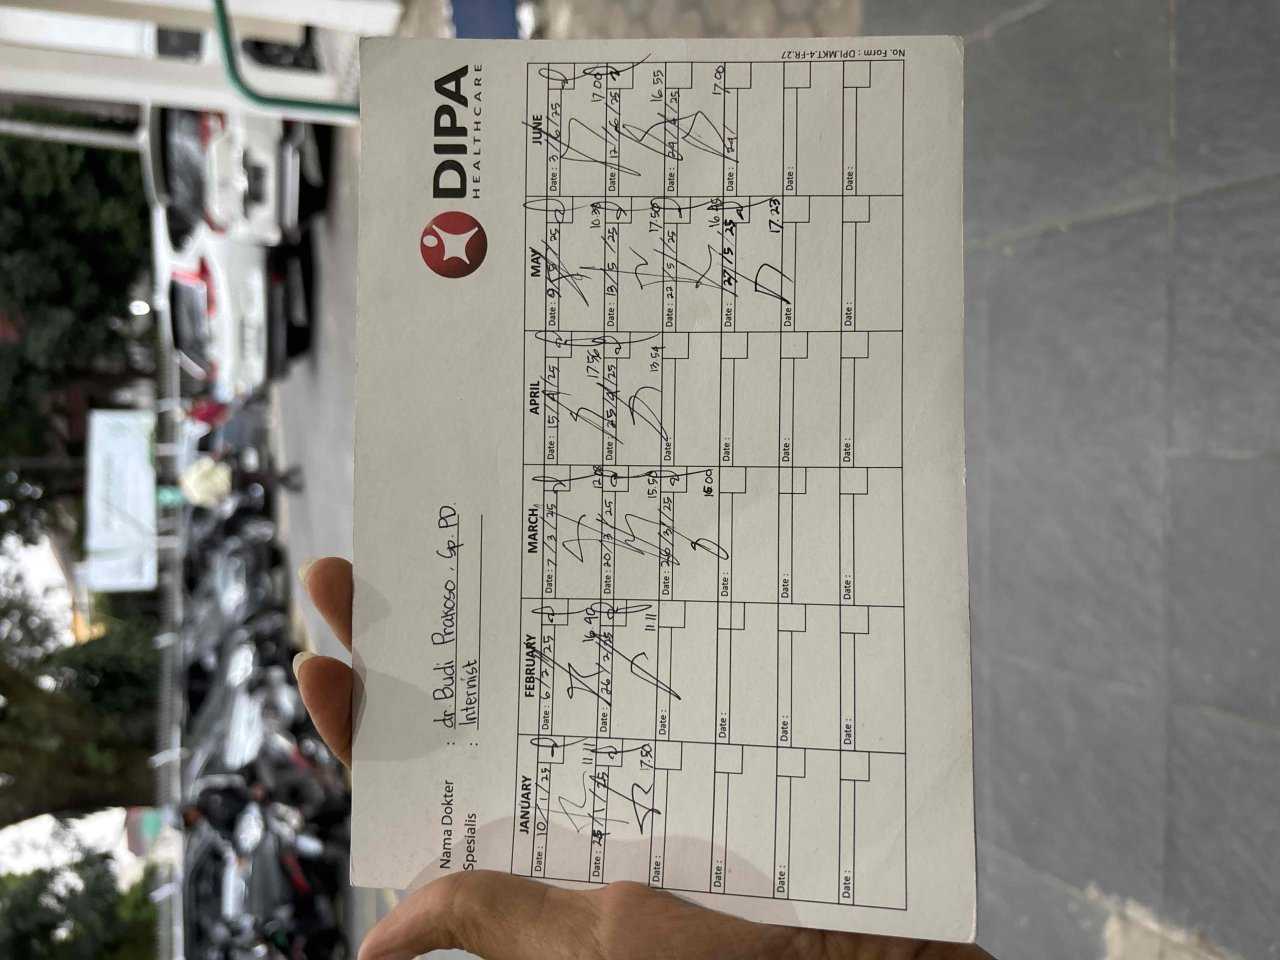 DIPA
HEALTHCARE
Nama Dokter : dr. Budi Prakoso, Sp. PD.
Spesialis : Internist
JANUARY FEBRUARY MARCH APRIL MAY JUNE
Date : 10/1/25 Date : 6/2/25 Date : 7/3/25 Date : 15/4/25 Date : 9/5/25 Date : 3/6/25
11.11 16.40 12.08 17.56 10.30 17.00
Date : 25/1/25 Date : 26/2/25 Date : 20/3/25 Date : 25/4/25 Date : 13/5/25 Date : 12/6/25
17.50 11.11 15.50 13.54 17.50 16.55
Date : Date : Date : 26/3/25 Date : Date : 22/5/25 Date : 24/6/25
16.00 16.45 17.00
Date : Date : Date : Date : Date : 27/5/25 Date :
17.23
Date : Date : Date : Date : Date : Date :
Date : Date : Date : Date : Date : Date :
No. Form : DPI.MKT.4-FR.27